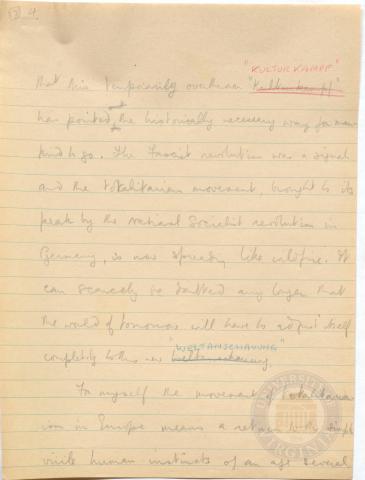 4.
"KULTURKAMPF"
that this temporarily overthrown "Kulturkampf"
has pointed out the historically necessary way for man-
kind to go. The Fascist revolution was a signal
and the totalitarian movement, brought to its
peak by the National Socialist revolution in
Germany, is now spreading like wildfire. It
can scarcely be doubted any longer that
the world of tomorrow will have to adjust itself
"WELTANSCHAUUNG"
completely to this new
For myself the movement of totalitarian
ism in Europe means a return to the simple
virile human instincts of an age several
UNIVERSITY OF VIRGINIA